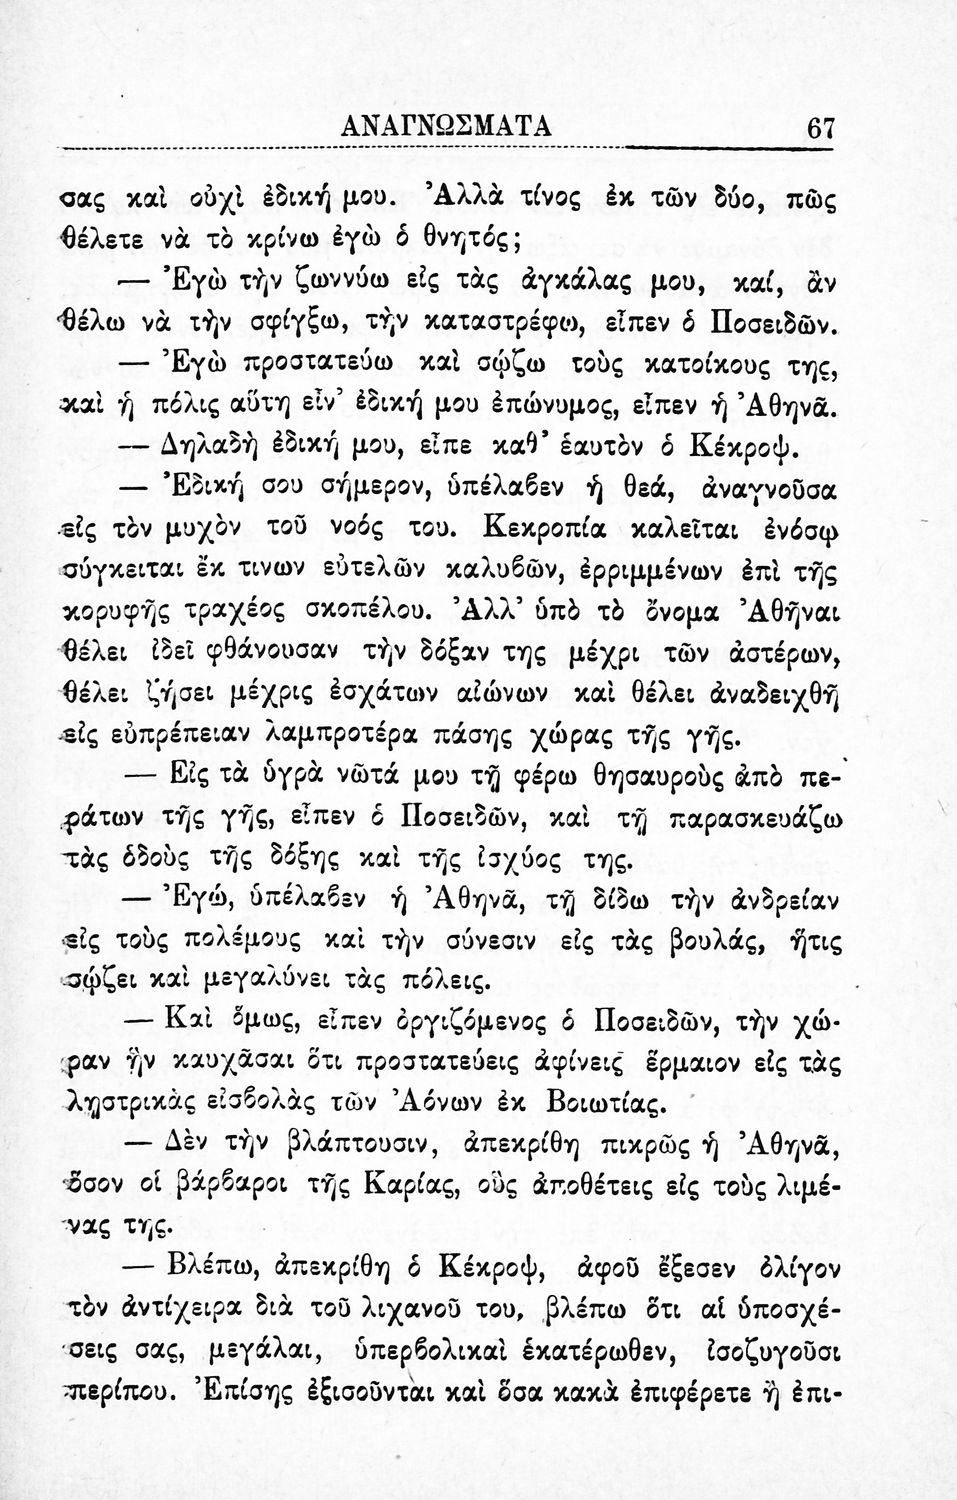 ΑΝΑΓΝΩΣΜΑΤΑ 67
σας καὶ οὐχὶ ἐδική μου. Ἀλλὰ τίνος ἐκ τῶν δύο, πῶς
θέλετε νὰ τὸ κρίνω ἐγὼ ὁ θνητός;
— Ἐγὼ τὴν ζωννύω εἰς τὰς ἀγκάλας μου, καί, ἂν
θέλω νὰ τὴν σφίγξω, τὴν καταστρέφω, εἶπεν ὁ Ποσειδῶν.
— Ἐγὼ προστατεύω καὶ σῴζω τοὺς κατοίκους της,
καὶ ἡ πόλις αὕτη εἶν' ἐδική μου ἐπώνυμος, εἶπεν ἡ Ἀθηνᾶ.
— Δηλαδὴ ἐδική μου, εἶπε καθ' ἑαυτὸν ὁ Κέκροψ.
— Ἐδική σου σήμερον, ὑπέλαβεν ἡ θεά, ἀναγνοῦσα
εἰς τὸν μυχὸν τοῦ νοός του. Κεκροπία καλεῖται ἐνόσῳ
σύγκειται ἔκ τινων εὐτελῶν καλυβῶν, ἐρριμμένων ἐπὶ τῆς
κορυφῆς τραχέος σκοπέλου. Ἀλλ' ὑπὸ τὸ ὄνομα Ἀθῆναι
θέλει ἰδεῖ φθάνουσαν τὴν δόξαν της μέχρι τῶν ἀστέρων,
θέλει ζήσει μέχρις ἐσχάτων αἰώνων καὶ θέλει ἀναδειχθῆ
εἰς εὐπρέπειαν λαμπροτέρα πάσης χώρας τῆς γῆς.
— Εἰς τὰ ὑγρὰ νῶτά μου τῇ φέρω θησαυροὺς ἀπὸ πε-
ράτων τῆς γῆς, εἶπεν ὁ Ποσειδῶν, καὶ τῇ παρασκευάζω
τὰς ὁδοὺς τῆς δόξης καὶ τῆς ἰσχύος της.
— Ἐγώ, ὑπέλαβεν ἡ Ἀθηνᾶ, τῇ δίδω τὴν ἀνδρείαν
εἰς τοὺς πολέμους καὶ τὴν σύνεσιν εἰς τὰς βουλάς, ἥτις
σῴζει καὶ μεγαλύνει τὰς πόλεις.
— Καὶ ὅμως, εἶπεν ὀργιζόμενος ὁ Ποσειδῶν, τὴν χώ-
ραν ἣν καυχᾶσαι ὅτι προστατεύεις ἀφίνεις ἕρμαιον εἰς τὰς
λῃστρικὰς εἰσβολὰς τῶν Ἀόνων ἐκ Βοιωτίας.
— Δὲν τὴν βλάπτουσιν, ἀπεκρίθη πικρῶς ἡ Ἀθηνᾶ,
ὅσον οἱ βάρβαροι τῆς Καρίας, οὓς ἀποθέτεις εἰς τοὺς λιμέ-
νας της.
— Βλέπω, ἀπεκρίθη ὁ Κέκροψ, ἀφοῦ ἔξεσεν ὀλίγον
τὸν ἀντίχειρα διὰ τοῦ λιχανοῦ του, βλέπω ὅτι αἱ ὑποσχέ-
σεις σας, μεγάλαι, ὑπερβολικαὶ ἑκατέρωθεν, ἰσοζυγοῦσι
περίπου. Ἐπίσης ἐξισοῦνται καὶ ὅσα κακὰ ἐπιφέρετε ἢ ἐπι-